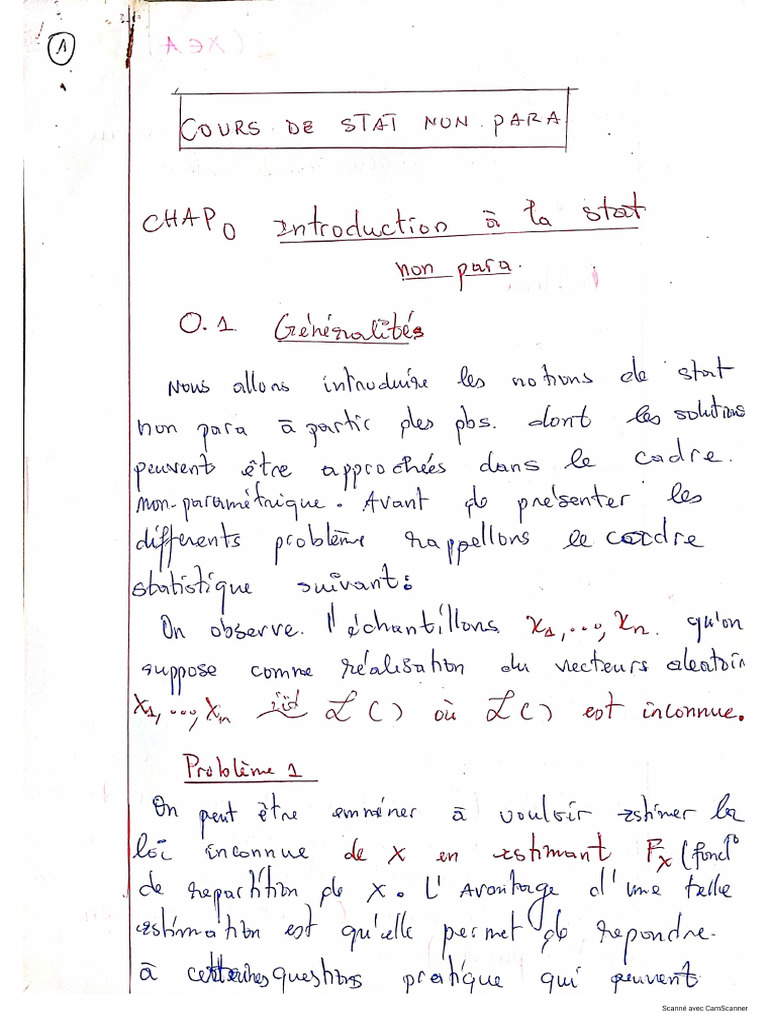 1
COURS DE STAT NON PARA
CHAP 0 Introduction à la stat
non para.
0.1 Généralités
Nous allons introduire les notions de stat
non para à partir des pbs. dont les solutions
peuvent être approchées dans le cadre.
non-paramétrique. Avant de présenter les
différents problème rappellons le cadre
statistique suivant:
On observe l'échantillons x1,...,xn. qu'on
suppose comme réalisation du vecteurs aleatoir
X1,...,Xn iid ℒ() où ℒ() est inconnue.
Problème 1
On peut être emméner à vouloir estimer la
loi inconnue de X en estimant Fx (fonct°
de repartition de X. L'Avantage d'une telle
estimation est qu'elle permet de repondre.
à certaines questions pratique qui peuvent
Scanné avec CamScanner